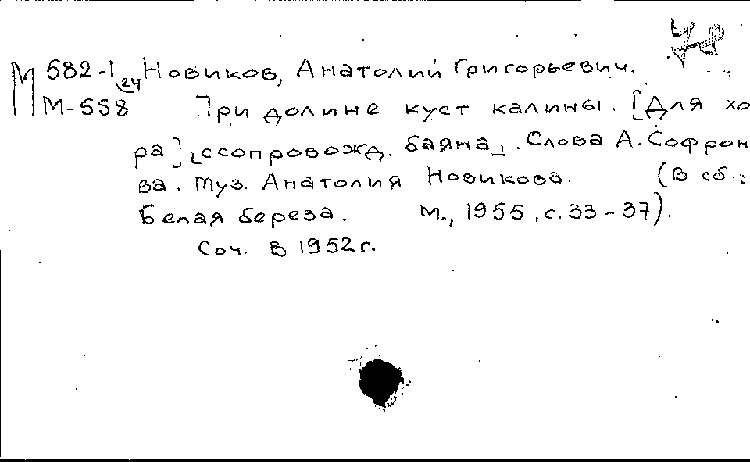 М 582-1 24 Новиков, Анатолий Григорьевич.
М-558 При долине куст калины. [Для хо
ра] [с сопровожд. баяна]. Слова А. Софрон
ва. Муз. Анатолия Новикова. (В сб.:
Белая береза. М., 1955, с. 33-37).
Соч. в 1952 г.